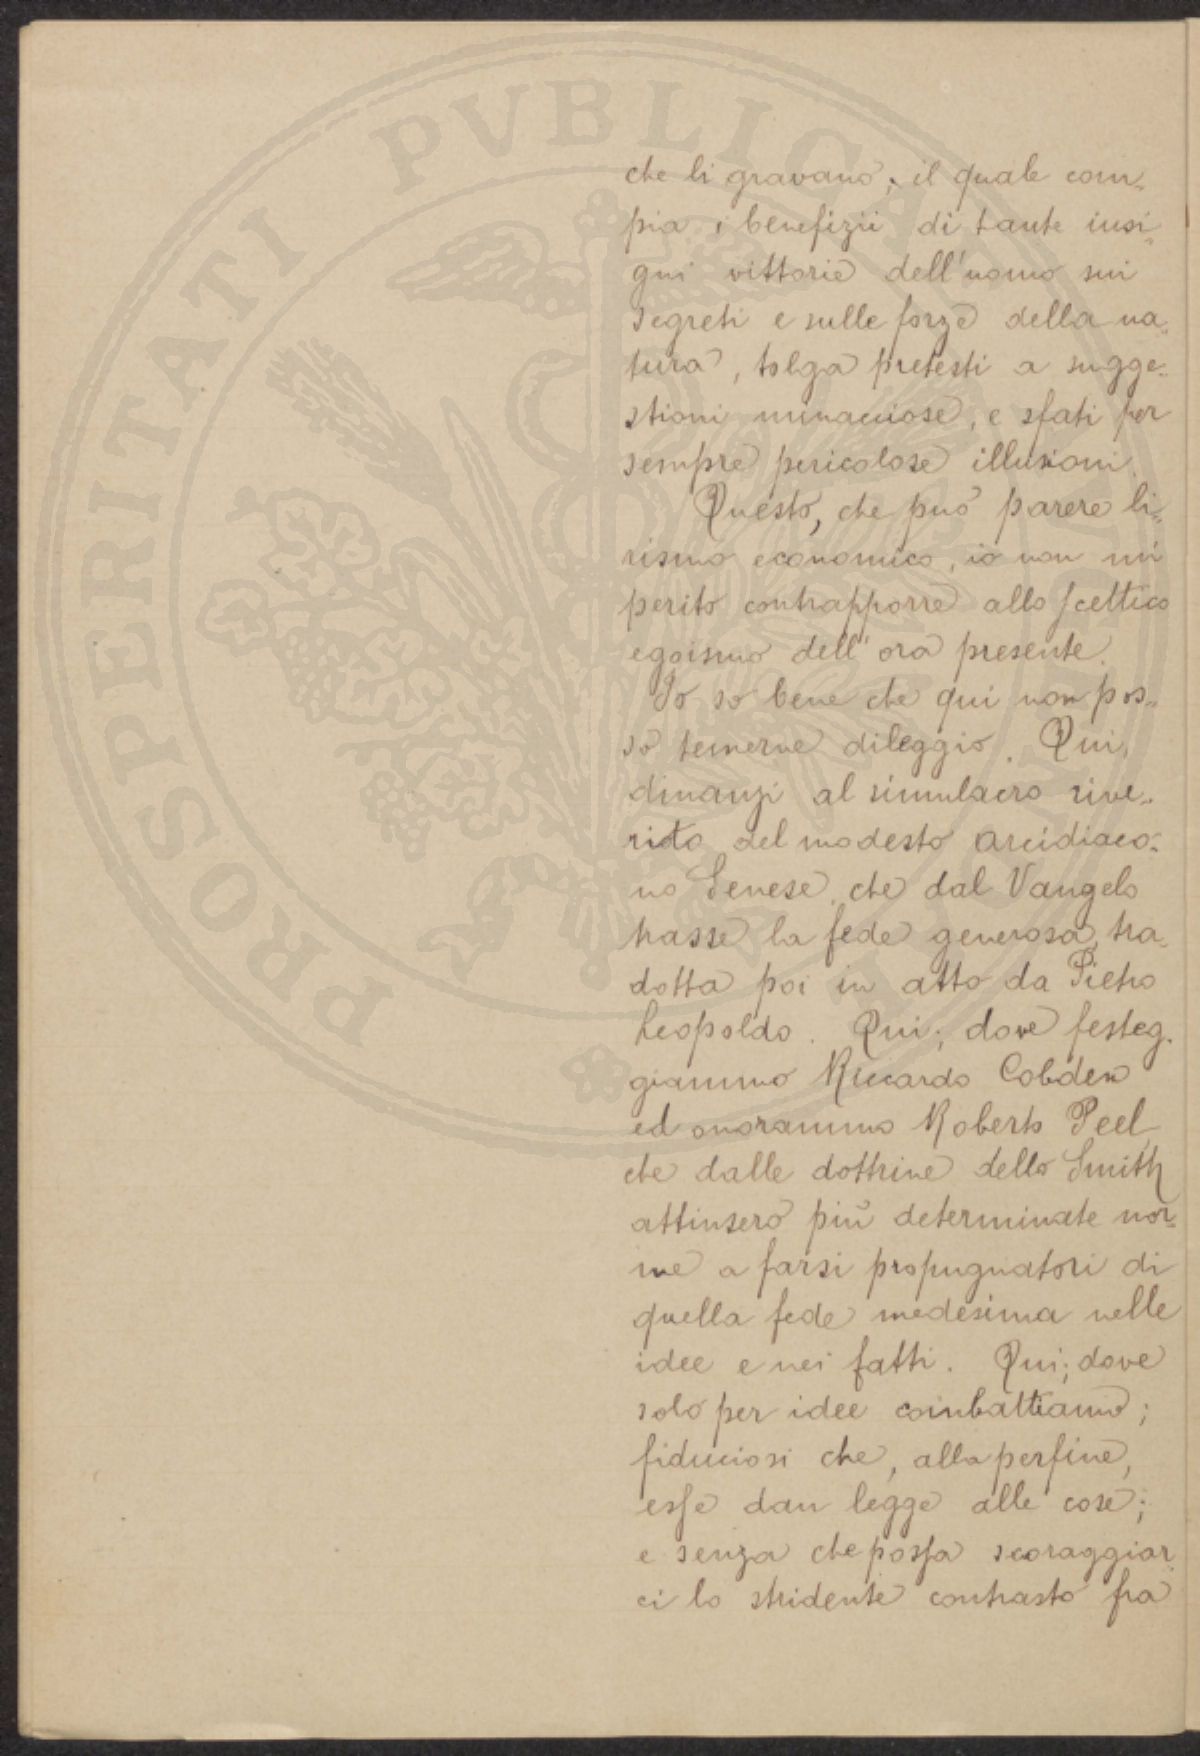 PROSPERITATI PVBLICAE
che li gravano; il quale com-
pia i benefizii di tante insi-
gni vittorie dell'uomo sui
segreti e sulle forze della na-
tura, tolga pretesti a sugge-
stioni minacciose, e sfati per
sempre pericolose illusioni.
Questo, che può parere li-
rismo economico, io non mi
perito contrapporre allo scettico
egoismo dell'ora presente.
Io so bene che qui non pos-
so temerne dileggio. Qui,
dinanzi al simulacro rive-
rito del modesto arcidiaco-
no Senese, che dal Vangelo
trasse la fede generosa, tra-
dotta poi in atto da Pietro
Leopoldo. Qui; dove festeg-
giammo Riccardo Cobden
ed onorammo Roberto Peel,
che dalle dottrine dello Smith
attinsero più determinate nor-
me a farsi propugnatori di
quella fede medesima nelle
idee e nei fatti. Qui; dove
solo per idee combattiamo;
fiduciosi che, alla perfine,
esse dan legge alle cose;
e senza che possa scoraggiar-
ci lo stridente contrasto fra